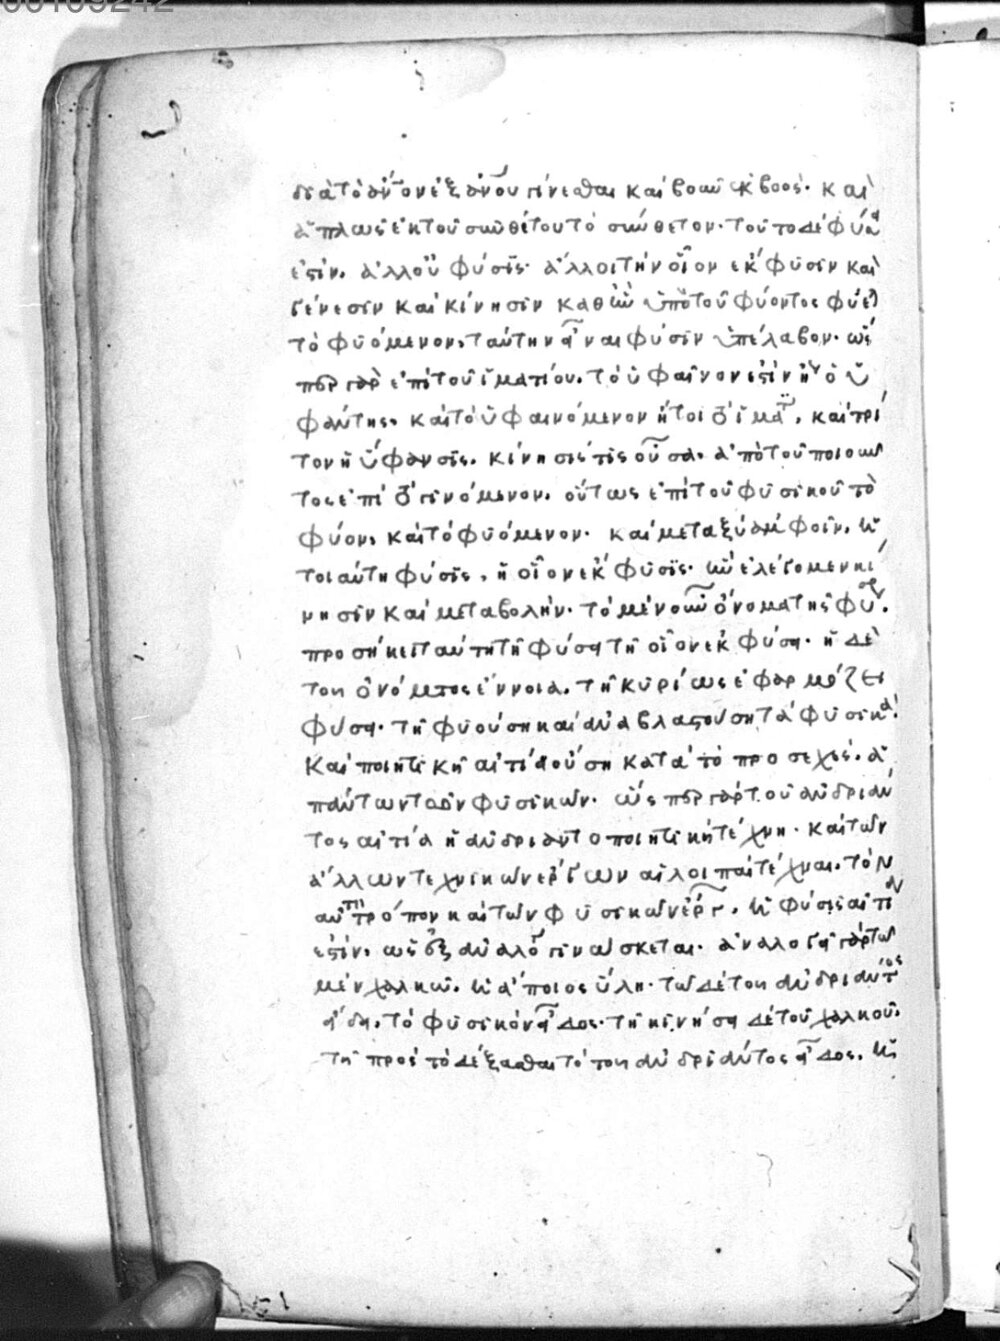 διὰ τὸ ἄνον ἐξ ἄνου γίνεσθαι καὶ βοῦν ἐκ βοός· καὶ
ἁπλῶς ἐκ τοῦ συνθέτου τὸ σύνθετον· τοῦτο δὲ φύσις
ἐστίν. ἀλλ' οὐ φύσις· ἀλλ' οἱ τὴν οἷον ἔκφυσιν καὶ
γένεσιν καὶ κίνησιν καθ' ἣν ὑπὸ τοῦ φύοντος φύεται
τὸ φυόμενον, ταύτην εἶναι φύσιν ὑπέλαβον· ὥσ
περ γὰρ ἐπὶ τοῦ ἱματίου. τὸ ὑφαῖνον ἐστὶν ἢ ὁ ὑ
φάντης, καὶ τὸ ὑφαινόμενον ἤτοι τὸ ἱμάτιον, καὶ τρί
τον ἡ ὕφανσις, κίνησίς τις οὖσα, ἀπὸ τοῦ ποιοῦν
τος ἐπὶ τὸ γινόμενον. οὕτως ἐπὶ τοῦ φυσικοῦ τὸ
φύον, καὶ τὸ φυόμενον· καὶ μεταξὺ ἀμφοῖν, ἡ
τοιαύτη φύσις, ἡ οἷον ἔκφυσις· ἣν ἐλέγομεν κί
νησιν καὶ μεταβολήν· τὸ μὲν οὖν ὄνομα τῆς φύσεως
προσήκει ταύτῃ τῇ φύσει τῇ οἷον ἐκφύσει· ἡ δὲ
τοῦ ὀνόματος ἔννοια, τῇ κυρίως ἐφαρμόζει
φύσει· τῇ φυούσῃ καὶ ἀναβλαστούσῃ τὰ φυσικά·
καὶ ποιητικῇ αἰτίᾳ οὔσῃ κατὰ τὸ προσεχὲς, ἁ
πάντων τῶν φυσικῶν· ὥσπερ γὰρ τοῦ ἀνδριάν
τος αἰτία ἡ ἀνδριαντοποιητικὴ τέχνη· καὶ τῶν
ἄλλων τεχνικῶν ἔργων αἱ λοιπαὶ τέχναι. τὸν
αὐτὸν τρόπον καὶ τῶν φυσικῶν ἔργων, ἡ φύσις αἴτιον
ἐστίν. ὡς ἐξ ἀναλόγου γινώσκεται· ἀναλογεῖ γὰρ τῷ
μὲν χαλκῷ, ἡ ἄποιος ὕλη· τῷ δὲ τοῦ ἀνδριάντος
εἴδει, τὸ φυσικὸν εἶδος· τῇ κινήσει δὲ τοῦ χαλκοῦ,
τῇ πρὸς τὸ δέξασθαι τὸ τοῦ ἀνδριάντος εἶδος, ἡ